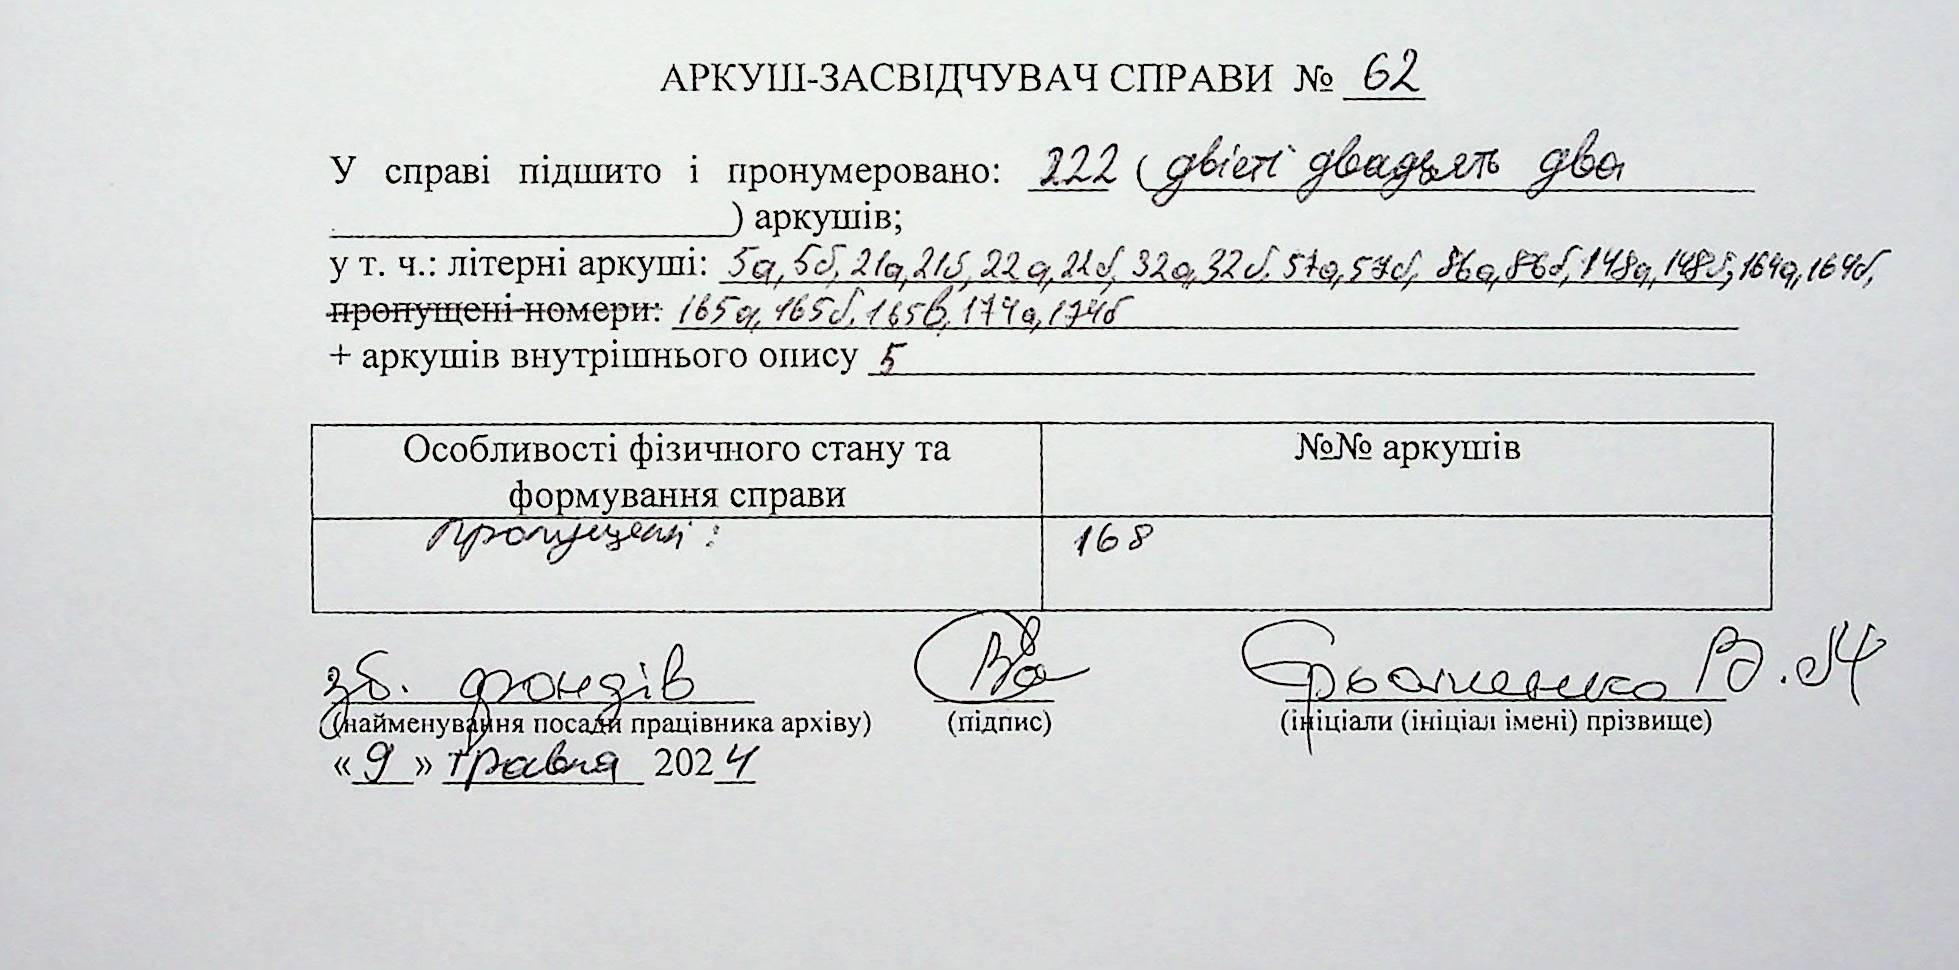 АРКУШ-ЗАСВІДЧУВАЧ СПРАВИ № 62
У справі підшито і пронумеровано: 222 (двісті двадцять два
) аркушів;
у т. ч.: літерні аркуші: 5а, 5б, 21а, 21б, 22а, 22б, 32а, 32б, 57а, 57б, 86а, 86б, 148а, 148б, 164а, 164б,
пропущені номери: 165а, 165б, 165в, 174а, 174б
+ аркушів внутрішнього опису 5
Особливості фізичного стану та
формування справи
№№ аркушів
пропущені: 168
зб. фондів
В.М
(найменування посади працівника архіву) (підпис) (ініціали (ініціал імені) прізвище)
«9» травня 2024